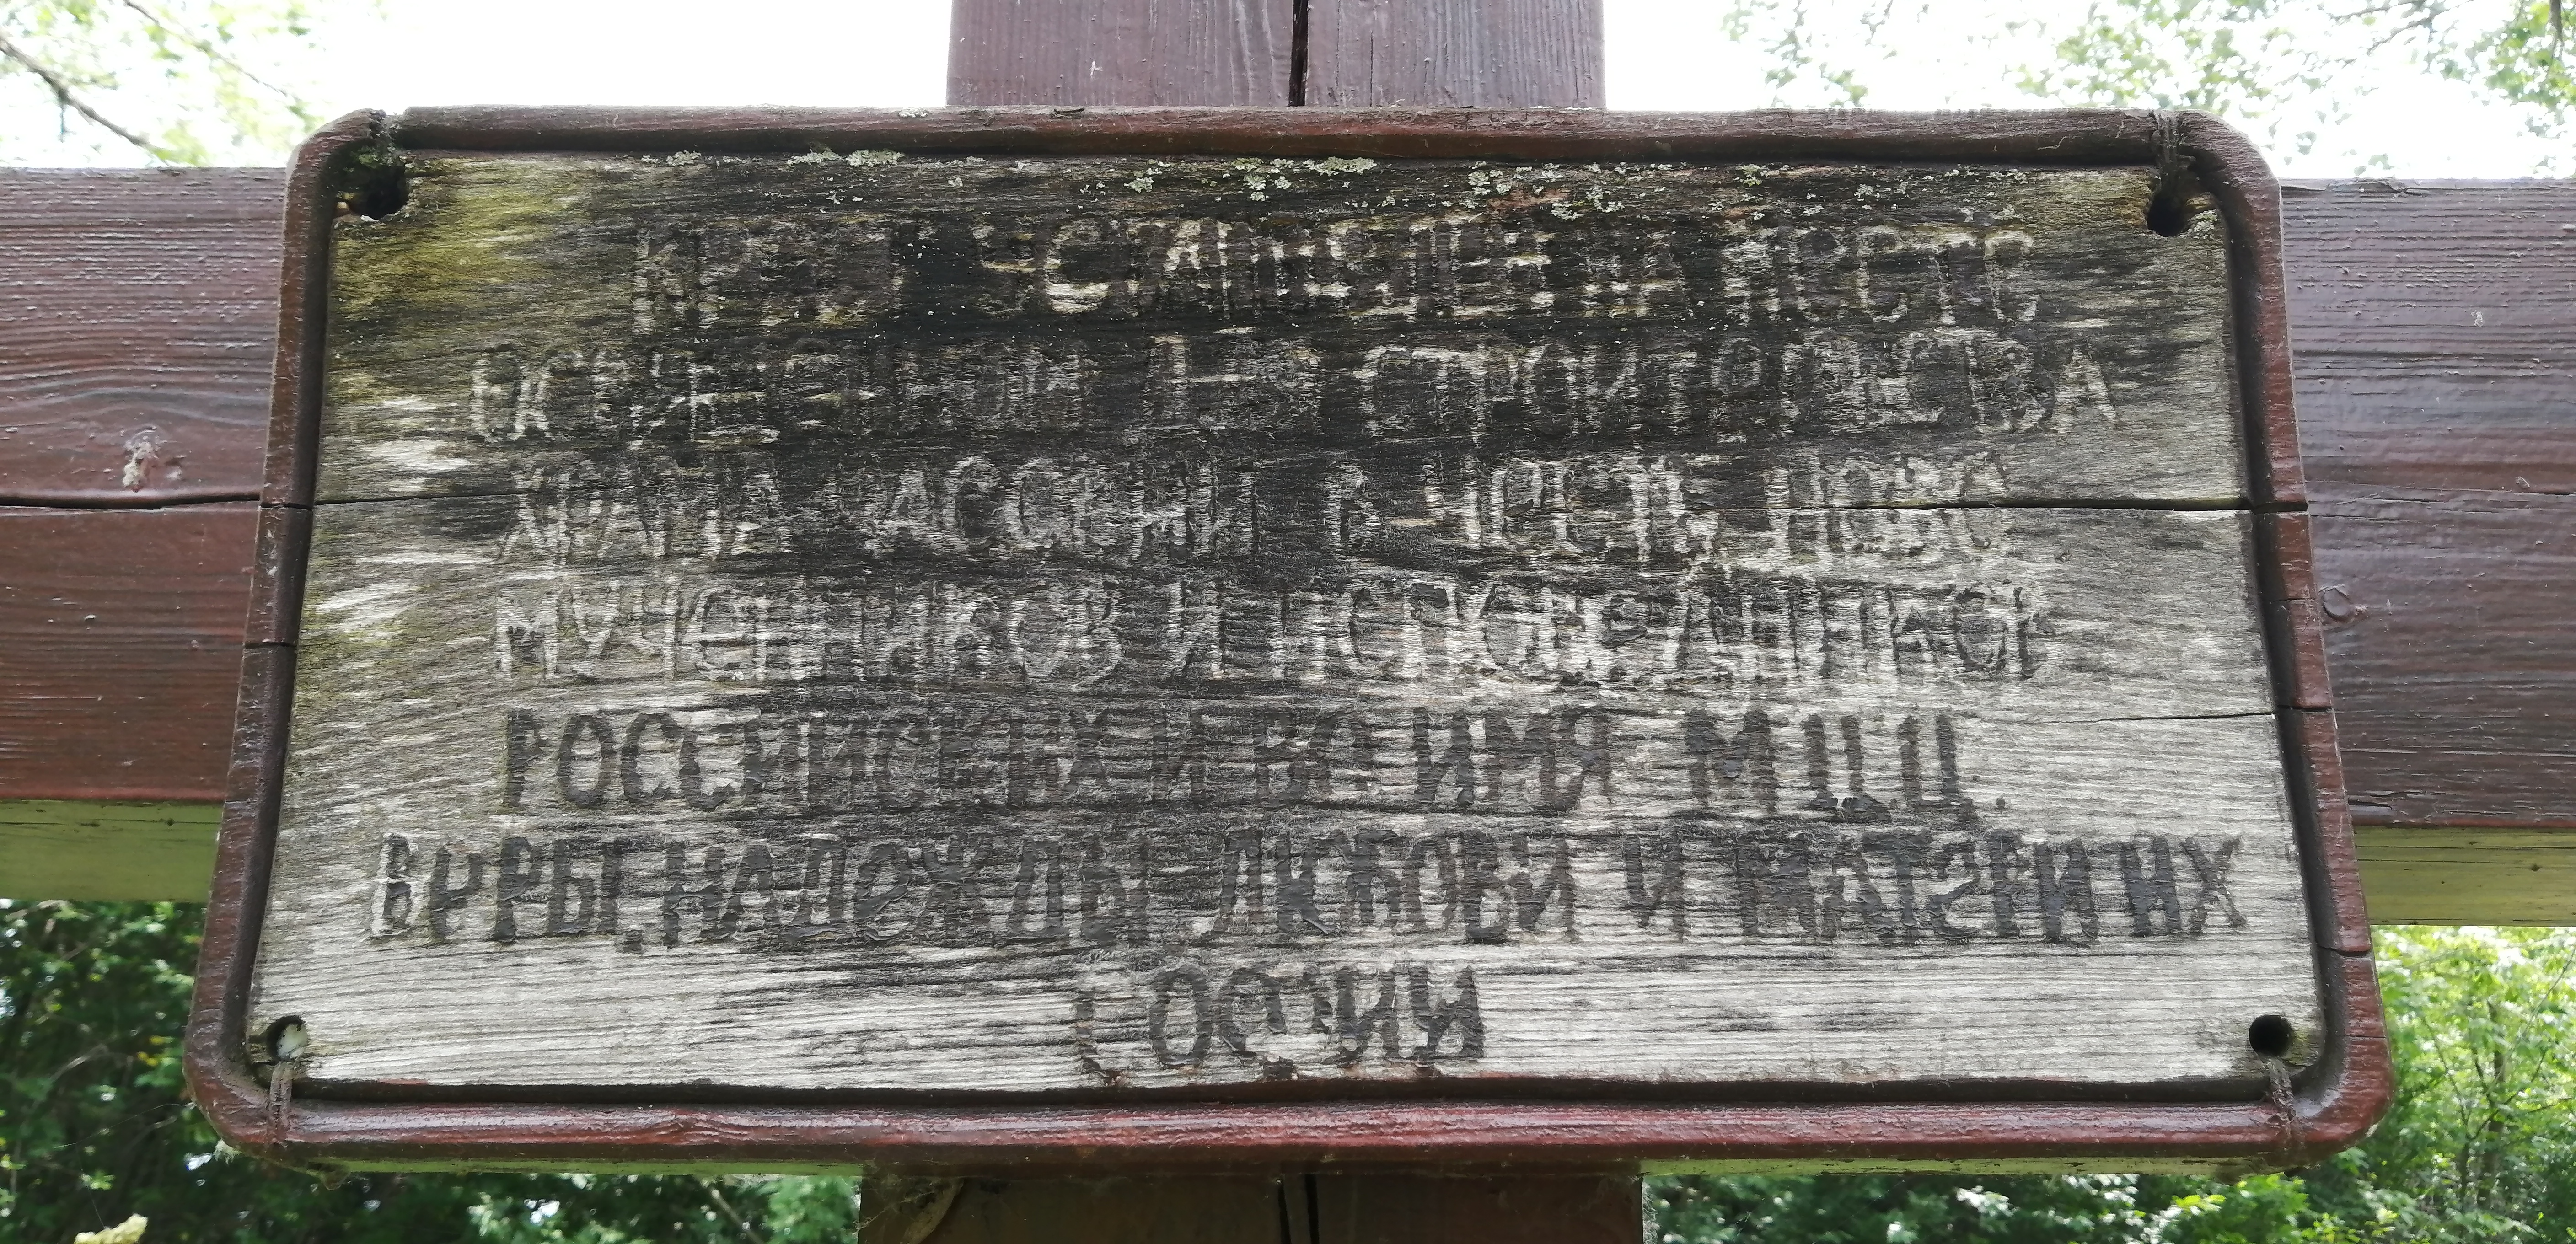 КРЕСТ УСТАНОВЛЕН НА МЕСТЕ
ОСВЯЩЕННОМ ДЛЯ СТРОИТЕЛЬСТВА
ХРАМА В ЧЕСТЬ НОВО
МУЧЕННИКОВ И ИСПОВЕДНИКОВ
РОССИЙСКИХ И ВО ИМЯ МЦ.Ц.
ВЕРЫ, НАДЕЖДЫ ЛЮБОВИ И МАТЕРИ ИХ
СОФИИ